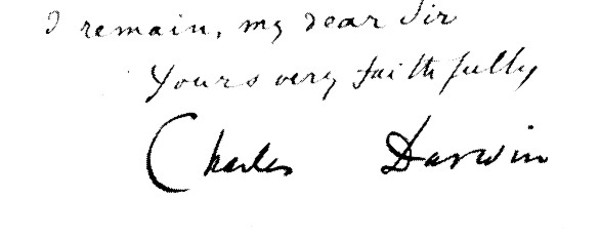 I remain, my dear Sir
Yours very faithfully
Charles Darwin